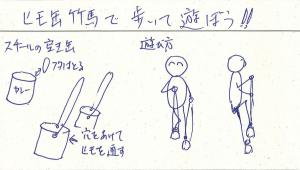 ヒモ缶竹馬で歩いて遊ぼう!!
スチールの空き缶
遊び方
フタはとる
カレー
穴をあけて
ヒモを通す